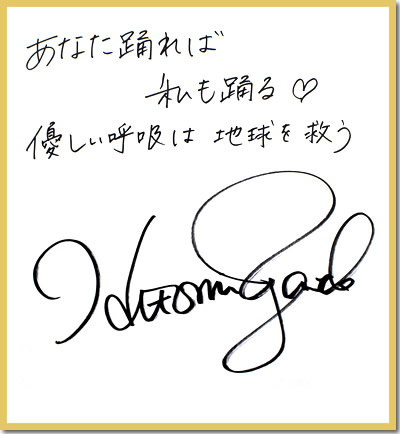 あなた踊れば
私も踊る♡
優しい呼吸は 地球を救う